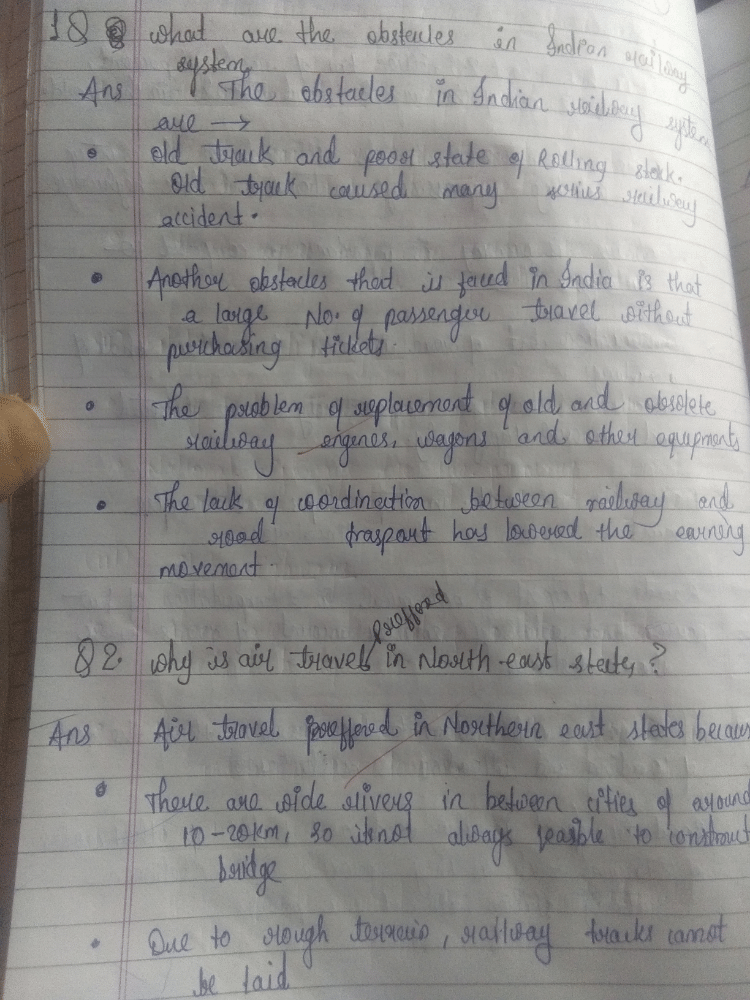 1Q what are the obstacles in Indian railway
system
Ans The obstacles in Indian railway system
are →
• Old track and poor state of Rolling stock.
Old track caused many serius railway
accident.
• Another obstacles that is faced in India is that
a large No. of passenger travel without
purchasing tickets.
• The problem of replacement of old and obsolete
railway engenes, wagons and other equipments
• The lack of coordination between railway and
road traspart has lowered the earning
movement.
preffered
Q2. why is air travel in North-east states?
Ans Air travel preffered in Northern east states becaus
• There are wide rivers in between cities of around
10-20km, so its not always feasible to construct
bridge
• Due to rough terrain, railway tracks cannot
be laid